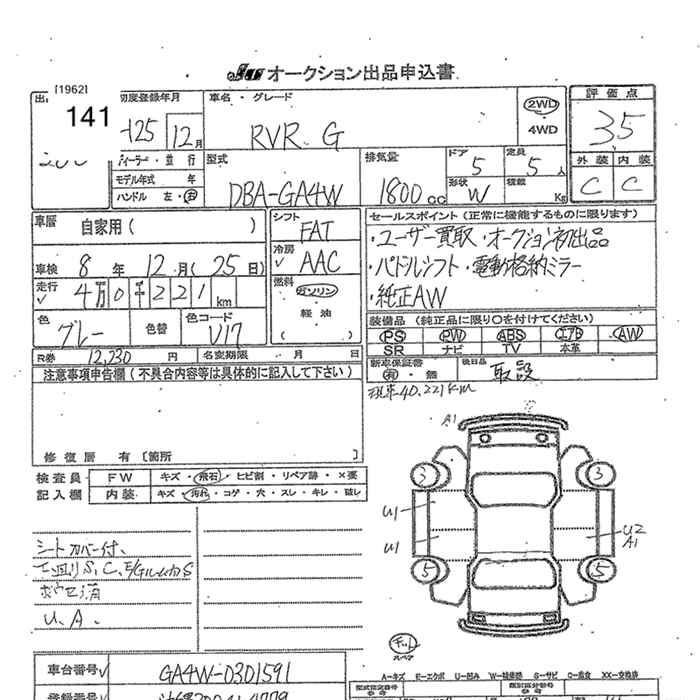 JU オークション出品申込書
[1962]
141
初度登録年月
車名・グレード
評価点
H25 12月
RVR G
2WD
4WD
3.5
ディーラー・並行
型式
排気量
ドア
定員
外装 内装
モデル年式 年
5
5 人
ハンドル 左・右
DBA-GA4W
1800 cc
形状
W
積載
Kg
C C
車歴
自家用( )
シフト
FAT
セールスポイント(正常に機能するものに限ります)
・ユーザー買取・オークション初出品
車検 8年 12月(25日)
冷房
AAC
・パドルシフト・電動格納ミラー
走行 4万0千221km
燃料
ガソリン
・純正AW
軽油
( )
色
グレー
色替
色コード
U17
装備品(純正品に限り○を付けてください)
PS PW ABS エアB AW
SR ナビ TV 本革
R券 12,230円
名変期限 月 日
新車保証書
有・無
後日品
取説
注意事項申告欄(不具合内容等は具体的に記入して下さい)
現車40.221km
修復歴 有〔箇所 〕
検査員
記入欄
FW
キズ・飛石・ヒビ割・リペア跡・×要
内装
キズ・汚れ・コゲ・穴・スレ・キレ・破レ
A1
3
3
U1
U1
U2
A1
5
5
シートカバー付、
下廻りS,C,
U.A.
スペア
A-キズ E-エクボ U-凹み W-補修跡 S-サビ C-腐食 XX-交換済
車台番号
GA4W-0301591
型式指定番号
類別区分番号
登録番号